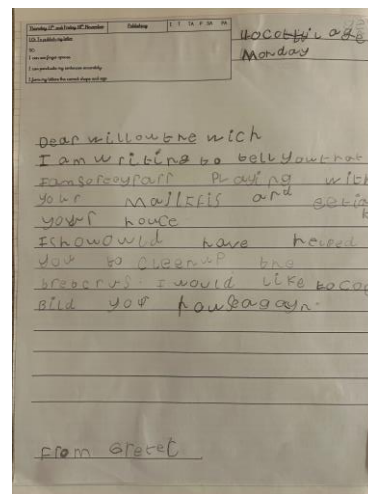 Thursday 17th and Friday 18th November Publishing E T TA P SR PA
LO: To publish my letter
SC:
I can use finger spaces.
I can punctuate my sentences accurately.
I form my letters the correct shape and size.
Monday
Dear willow the wich
I am writing to tell you that
I am sorey for Playing with
your and eeting
your house
I showowld have helped
you to cleenup the
I would like to
Bild you agayn.
From Gretel